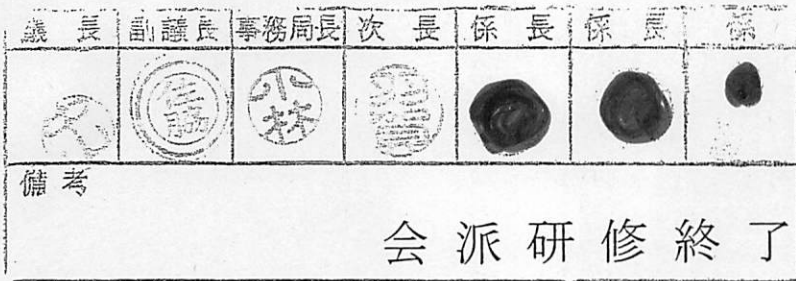 議長 副議長 事務局長 次長 係長 係長 係
佐脇 小林
備考
会派研修終了